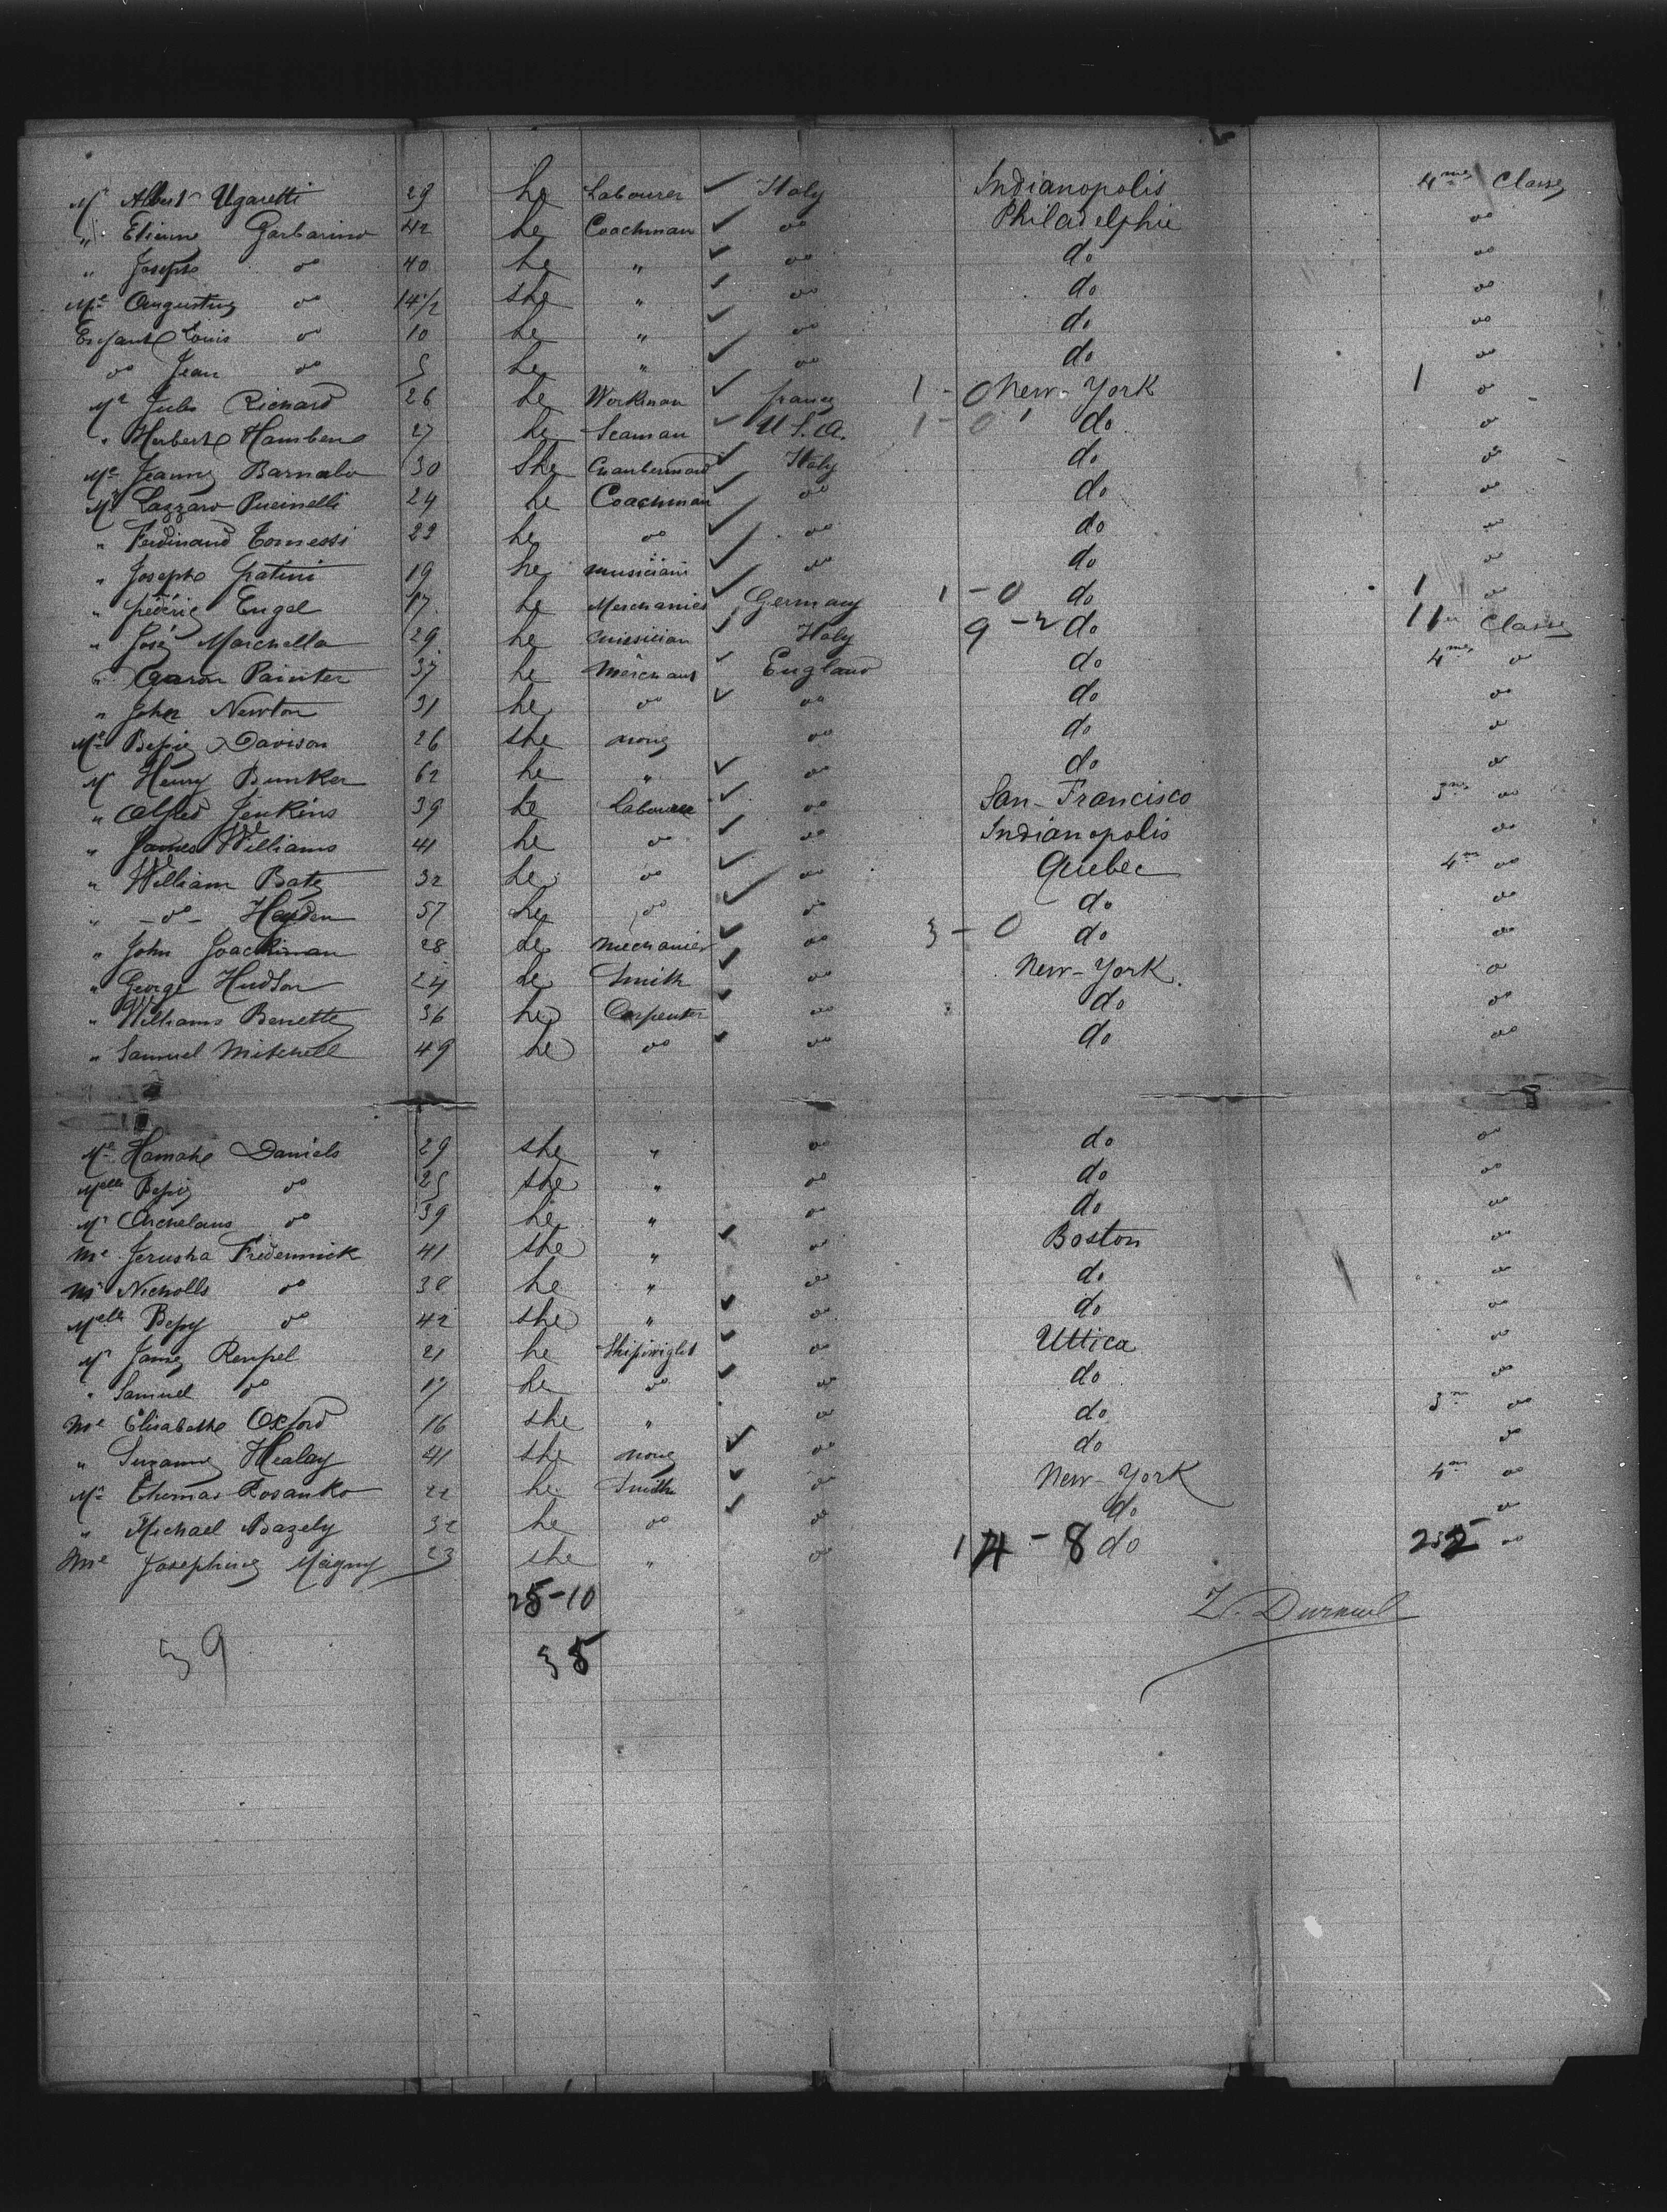 Mr Albert Ugaretti 29 he Labourer ✓ Italy Indianopolis 4me Classe
" Etienne Garbarino 42 he Coachman ✓ do Philadelphie do
" Joseph do 40 he " ✓ do do do
Me Augustine do 14 1/2 she " ✓ do do do
Enfant Louis do 10 he " ✓ do do do
do Jean do 5 he " ✓ do do do
Mr Jules Richard 26 he Workman ✓ france 1 - 0 New-York 1 do
" Herbert Hamben 27 he Seaman ✓ U.S.A. 1 - 0 do do
Me Jeanne Barnabo 30 She ✓ Italy do do
Mr Lazzaro Pucinelli 24 he Coachman ✓ do do do
" Ferdinand 22 he do ✓ do do do
" Joseph Gratini 19 he musician ✓ do do do
" féderic Engel 17 he ✓ Germany 1 - 0 do 1 do
" José Marchella 29 he ✓ Italy 9 - 2 do 11 Classe
" Aaron Painter 37 he Merchant ✓ England do 4me do
" John Newton 31 he do ✓ do do do
Me Bessie Davison 26 she none do do do
Mr Henry Bunker 62 he " ✓ do do do
" Alfred Jenkins 39 he Labourer ✓ do San-Francisco 3me do
" James Williams 41 he do ✓ do Indianopolis do
" William Bate 32 he do ✓ do Quebec 4me do
" - do - Hayden 57 he do ✓ do do do
" John Joackiman 28 he ✓ do 3 - 0 do do
" George Hudson 24 he Smith ✓ do New-York do
" Williams Bennette 36 he Carpenter ✓ do do do
" Samuel Mitchell 49 he do ✓ do do do
Me Daniels 29 she " do do do
Melle Bessie do 25 she " do do do
Mr Archelaus do 39 he " do do do
Me Jerusha Fredennick 41 she " ✓ do Boston do
Mr Nicholls do 38 he " do do do
Melle Bessy do 42 she " ✓ do do do
Mr James Renpel 21 he Shipwright ✓ do Uttica do
" Samuel do 17 he do ✓ do do do
Me Elisabethe Oxford 16 she " do do 3me do
" Suzanne Healay 41 she none ✓ do do do
Mr Thomas Rosanko 22 he Smith ✓ do New-York 4me do
" Michael Bazely 32 he do ✓ do do do
Me Josephine Magny 23 she " do 14 - 8 do do
25-10
39 35